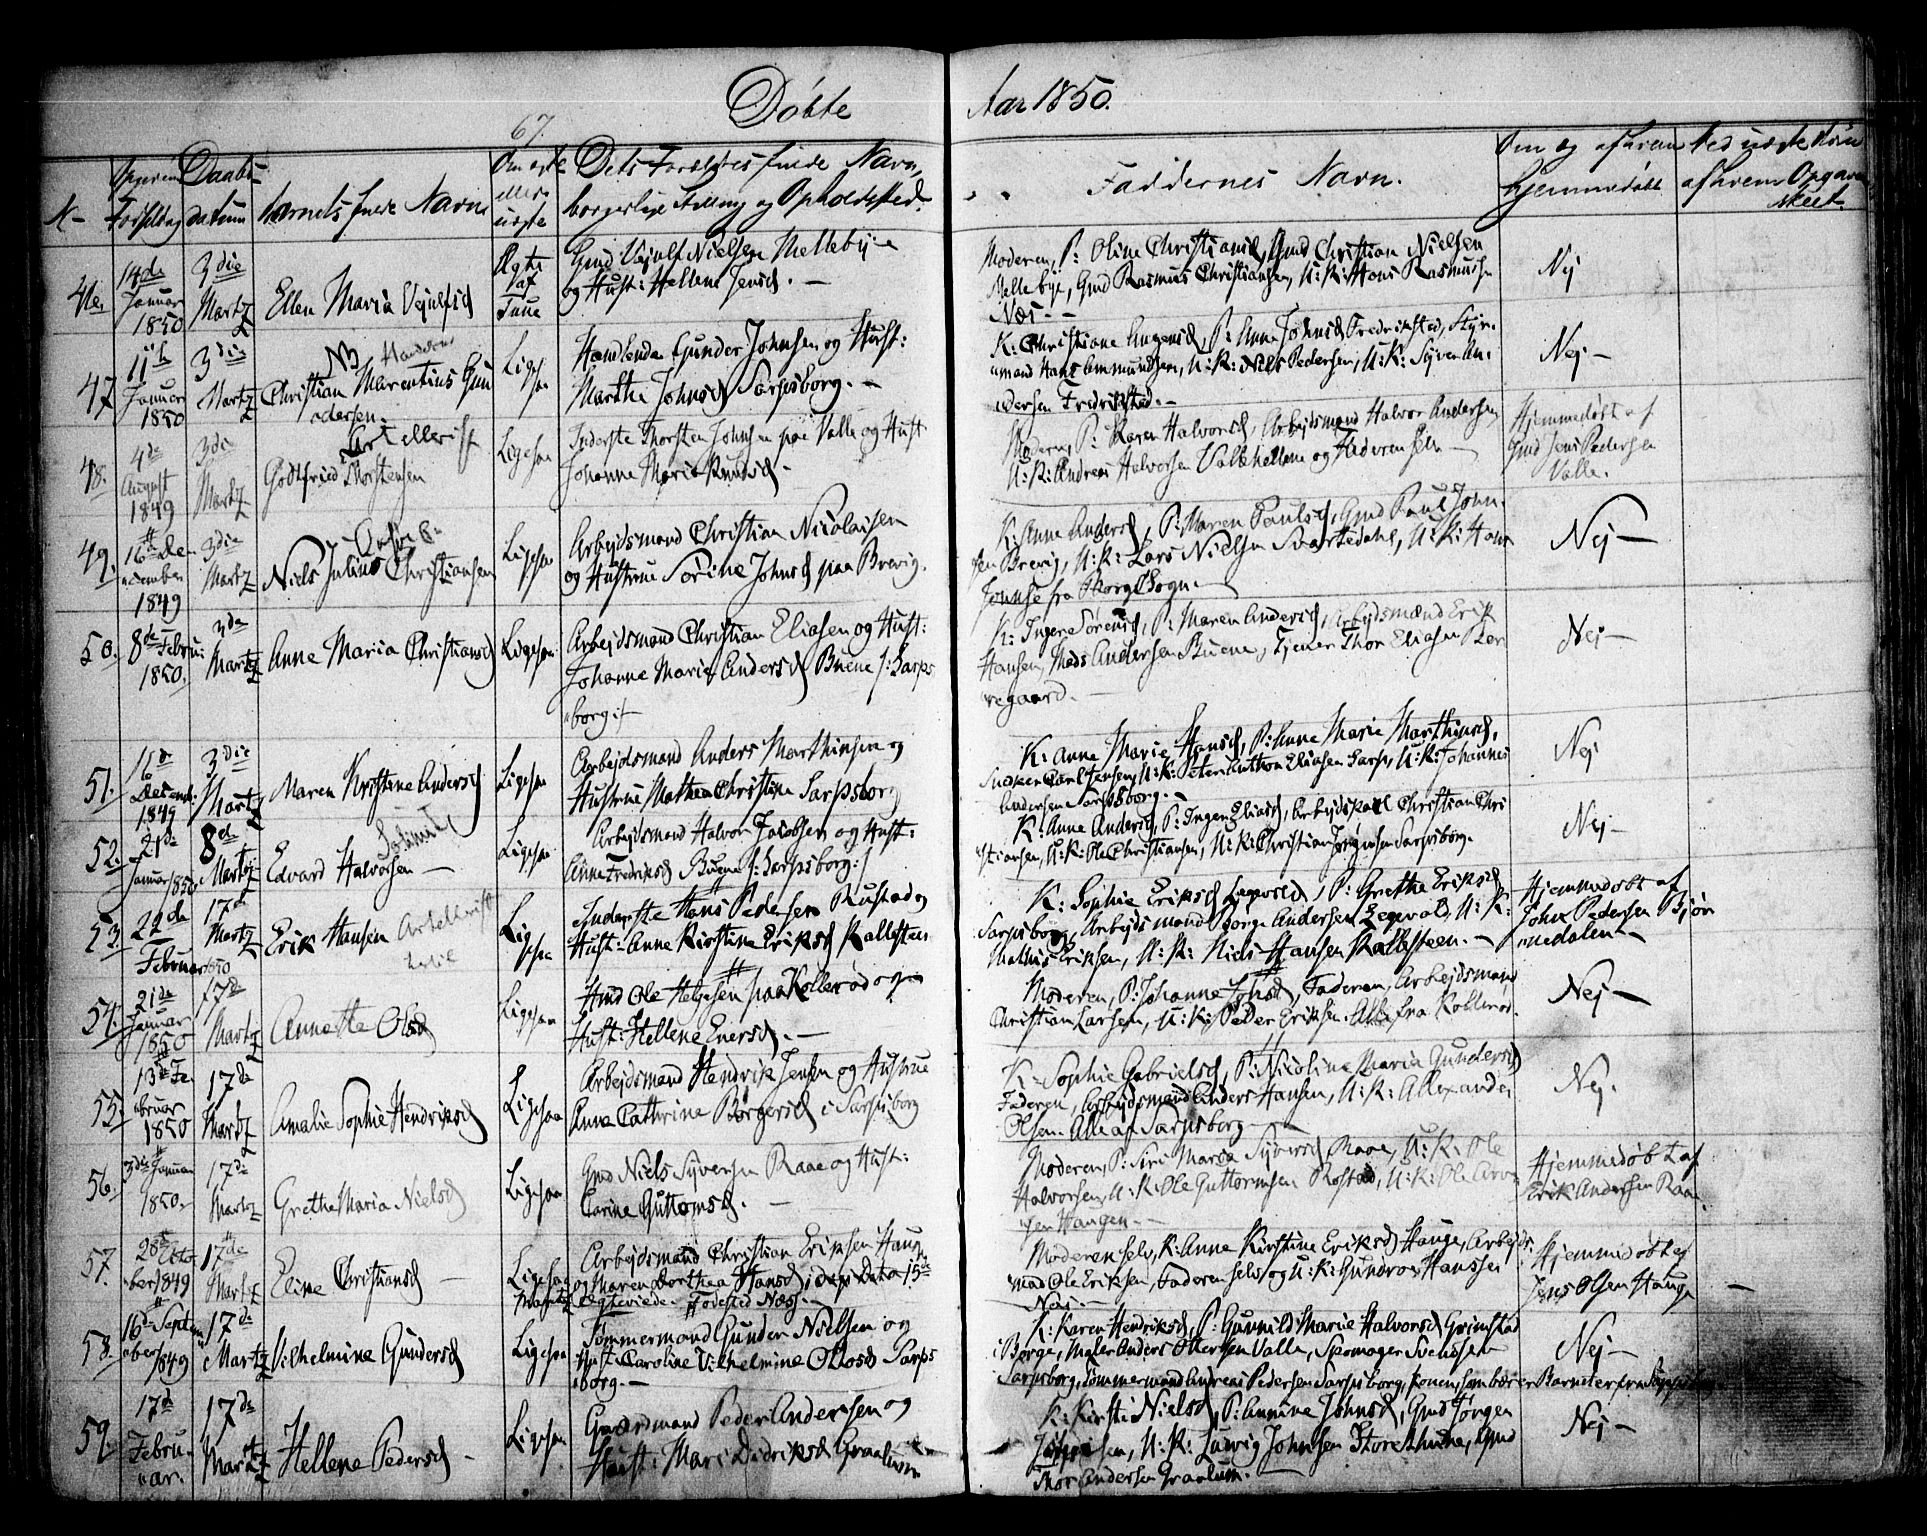 Døbte Aar 1850.
67.
No Opgiven Fødselsdag Daabsdatum Barnets fulde Navn Om ægte eller uægte Dets Forældres fulde Navn, borgerlige Stilling og Opholdssted.
Faddernes Navn. Om og af hvem hjemmedøbt Ved uægte Børn af hvem Opgaven skeet.
46. 14de Januar 1850 3die Martz Ellen Maria Vejulfsd Ægte
Gmd Vejulf Nielsen Mellebye
og Hust: Hellene Jensd. -
Moderen, P: Oline Christiansd, Gmd Christian Nielsen
Mellebye, Gmd Rasmus Christiansen, U: K: Hans Rasmusen
Næs -
Nej
47 11te Januar 1850 3die Martz NB Christian Marentius Gundersen. Ligesaa
Gunder Johnsen og Hust:
Marthe Johnsd Sarpsborg. -
K: Christiane P: Anne Johnsd Fredrikstad, Styrmand
Hans Ammundsen, U: K: Niels Pedersen, U: K: Syver Andersen
Fredrikstad. -
Nej -
48. 4de August 1849 3die Martz Godtfried Thorstensen Ligesaa
Inderste Thorsten Johnsen paa Valle og Hust
Johanne Marie -
Moderen, P: Karen Halvorsd, Arbejdsmand Halvor Andersen,
U: K: Andreas Halvorsen Vallehellene og Faderen selv -
Hjemmedøbt af
Gmd Jens Pedersen
Valle.
49. 16de November 1849 3die Martz Niels Julius Christiansen Ligesaa
Arbejdsmand Christian Nicolaisen
og Hustrue Sørine Johnsd paa Brevig.
K: Anne Andersd, P: Maren Paulsd, Gmd Paul Johnsen
Brevig, U: K: Lars Nielsen Svartedahl, U: K: Hans
fra Borge Sogn. -
Nej -
50. 8de Februar 1850. 3die Martz Anne Maria Christiansd Ligesaa
Arbejdsmand Christian Eliasen og Hust:
Johanne Marie Andersd Buene /: Sarps
borg :/
K: Inger Sørensd, P: Maren Andersd, Arbejdsmænd Erik
Hansen, Mads Andersen Buene, Tjener Thor Eliasen
-
Nej -
51. 16de Decemb: 1849 3die Martz Maren Kristine Andersd Ligesaa
Arbejdsmand Anders Marthinsen og
Hustrue Mathea Christine Sarpsborg
K: Anne Marie Hansd, P: Anne Marie Marthinsd,
Snedker Carl Jensen, U: K: Peter Anthon Eliasen Sarp, U: K: Johannes
Andersen Sarpsborg. -
Nej
52. 21de Januar 1850 8de Martz Edvard Halvorsen - Ligesaa
Arbejdsmand Halvor Jacobsen og Hust:
Anne Fredriksd Buene /: Sarpsborg :/
K: Anne Andersd, P: Inger Eliasd, Arbejdskarl Christian Christiansen,
U: K: Ole Christiansen, U: K: Christian Jørgensen Sarpsborg.
Nej -
53. 22de Februar 1850 17de Martz Erik Hansen Ligesaa
Inderste Hans Pedersen Rustad og
Hust: Anne Kirstine Eriksd Kallesteen
K: Sophie Eriksd, P: Grethe Eriksd
Sarpsborg, Arbejdsmand Borge Andersen, U: K:
Mathis Eriksen, U: K: Niels Hansen Kallesteen. -
Hjemmedøbt af
John Pedersen Bjørnedalen -
54. 21de Januar 1850 17de Martz Annette Olsd Ligesaa
Gmd Ole Helgesen paa Kollerød og
Hust: Hellene Enersd. -
Moderen, P: Johanne Johsd, Faderen, Arbejdsmand
Christian Larsen, U: K: Peder Eriksen. Alle fra Kollerød.
Nej -
55. 13de Februar 1850 17de Martz Amalie Sophie Hendriksd Ligesaa
Arbejdsmand Hendrik Jensen og Hustrue
Anne Cathrine Børgersd i Sarpsborg
K: Sophie Gabrielsd, P: Nicoline Maria Gundersd
Faderen, Arbejdsmand Anders Hansen, U: K: Allexander
Olsen. Alle af Sarpsborg -
Nej.
56. 3die Januar 1850. 17de Martz Grethe Maria Nielsd Ligesaa
Gmd Niels Syversen Raae og Hust:
Carine Guttormsd. -
Moderen, P: Siri Maria Syversd Raae, U: K: Ole
Halvorsen, U: K: Ole Guttormsen Rostad, U: K: Ole Arvesen
Haugen. -
Hjemmedøbt af
Erik Andersen Raae
57. 28de October 1849 17de Martz Eline Christiansd - Ligesaa
Arbejdsmand Christian Eriksen Hauge
og Maren Dorthea Hansd, Dato 15de
Martz Ægteviede. Fødested Næs. -
Moderen selv, K: Anne Kirstine Eriksd Hauge, Arbejdsmand
Ole Eriksen, Faderen selv og U: K: Gundro Hanssen
Næs. -
Hjemmedøbt af
Jens Olsen Hauge
-
58. 16de September 1849 17de Martz Vilhelmine Gundersd Ligesaa
Tømmermand Gunder Nielsen og
Hust: Caroline Vilhelmine Olsd Sarps
borg. -
K: Karen Hendriksd, P: Gunnild Marie Halvorsd Grimstad
i Borge, Maler Anders Ottersen Valle, Skomager Svendsen
Sarpsborg, Tømmermand Andreas Pedersen Sarpsborg, Konen, som bærer Barnet er fra Sarpsborg
Nej -
59. 17de Februar. 17de Martz Hellene Pedersd - Ligesaa
Gaardmand Peder Andersen og
Hust: Mari Didriksd Graalum
K: Kirsti Nielsd, P: Annine Johnsd, Gmd Jørgen
U: K: Ludvig Johnsen Storethune, Gmd
Thor Andersen Graalum. -
Nej -